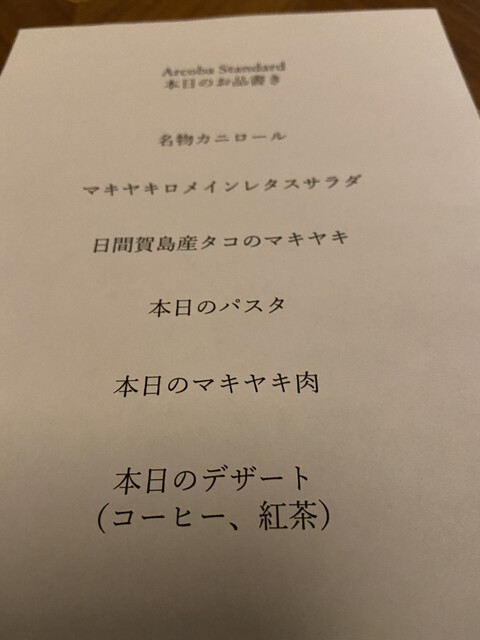 Arcoba Standard
本日のお品書き
名物カニロール
マキヤキロメインレタスサラダ
日間賀島産タコのマキヤキ
本日のパスタ
本日のマキヤキ肉
本日のデザート
(コーヒー、紅茶)